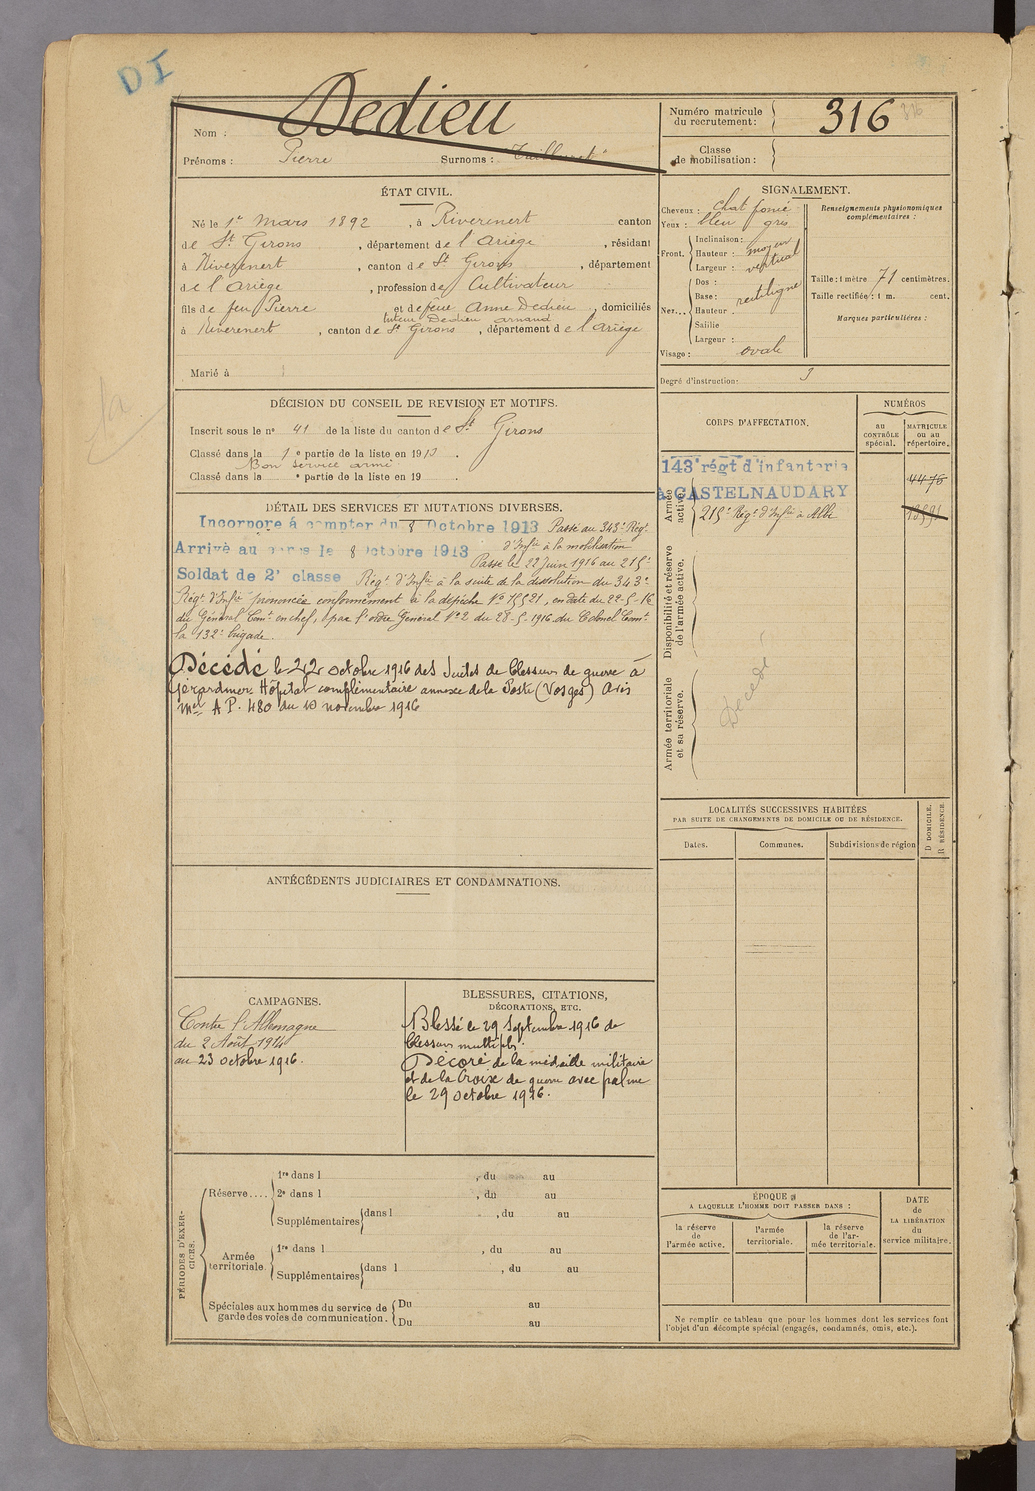 DI
Nom : Dedieu
Prénoms : Pierre Surnoms :
Numéro matricule du recrutement : 316
316
Classe de mobilisation :
ÉTAT CIVIL.
Né le 1er Mars 1892, à Riverenert canton
de St Girons, département de l'Ariège, résidant
à Riverenert, canton de St Girons, département
de l'Ariège, profession de Cultivateur
fils de feu Pierre et de feue Anne Dedieu, domiciliés
tuteur Dedieu armand
à Riverenert, canton de St Girons, département de l'Ariège
Marié à
SIGNALEMENT.
Cheveux : chat foncé
Yeux : bleu gris
Front. Inclinaison :
Hauteur : moyen
Largeur : vertical
Nez... Dos :
Base : rectiligne
Hauteur
Saillie
Largeur :
Visage : ovale
Renseignements physionomiques
complémentaires :
Taille : 1 mètre 71 centimètres.
Taille rectifiée : 1 m. cent.
Marques particulières :
Degré d'instruction : 3
DÉCISION DU CONSEIL DE REVISION ET MOTIFS.
Inscrit sous le n° 41 de la liste du canton de St Girons
Classé dans la 1e partie de la liste en 1913.
Bon service armé
Classé dans la e partie de la liste en 19 .
CORPS D'AFFECTATION.
NUMÉROS
au CONTRÔLE spécial.
MATRICULE ou au répertoire.
Armée active.
143e régt d'infanterie
à CASTELNAUDARY
4476
215e Régt d'Infie à Albi
Disponibilité et réserve de l'armée active.
Armée territoriale et sa réserve.
Décédé
DÉTAIL DES SERVICES ET MUTATIONS DIVERSES.
Incorporé à compter du 8 Octobre 1913 Passé au 343e Régt
d'Infie à la mobilisation
Arrivé au corps le 8 Octobre 1913
Passé le 22 Juin 1916 au 215e
Soldat de 2e classe Régt d'Infie à la suite de la dissolution du 343e
Régt d'Infie prononcée conformément à la dépêche No 15521, en date du 22-5-16
du Général Comt en chef, par l'ordre Général No 2 du 28-5-1916 du Colonel Comt
la 132e brigade.
Décédé le 22 octobre 1916 des suites de blessures de guerre à
Gérardmer Hôpital complémentaire annexe de la Poste (Vosges) Avis
Mel A P. 480 du 10 novembre 1916
LOCALITÉS SUCCESSIVES HABITÉES
PAR SUITE DE CHANGEMENTS DE DOMICILE OU DE RÉSIDENCE.
Dates.
Communes.
Subdivisions de région
D DOMICILE.
R RÉSIDENCE.
ANTÉCÉDENTS JUDICIAIRES ET CONDAMNATIONS.
CAMPAGNES.
Contre l'Allemagne
du 2 Août 1914
au 23 octobre 1916.
BLESSURES, CITATIONS,
DÉCORATIONS, ETC.
Blessé le 29 Septembre 1916 de
blessures multiples.
Décoré de la médaille militaire
et de la Croix de guerre avec palme
le 29 octobre 1916.
PÉRIODES D'EXERCICES.
Réserve.... 1re dans l , du au
2e dans l , du au
Supplémentaires dans l , du au
Armée territoriale. 1re dans l , du au
Supplémentaires dans l , du au
Spéciales aux hommes du service de garde des voies de communication. Du au
Du au
ÉPOQUE
A LAQUELLE L'HOMME DOIT PASSER DANS :
la réserve de l'armée active.
l'armée territoriale.
la réserve de l'armée territoriale.
DATE de LA LIBÉRATION du service militaire.
Ne remplir ce tableau que pour les hommes dont les services font
l'objet d'un décompte spécial (engagés, condamnés, omis, etc.).